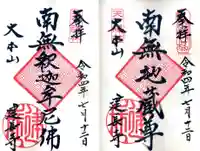 奉拝
令和四年七月十三日
南無釈迦牟尼佛
大本山
建長寺
奉拝
令和四年七月十三日
南無地蔵尊
大本山
建長寺